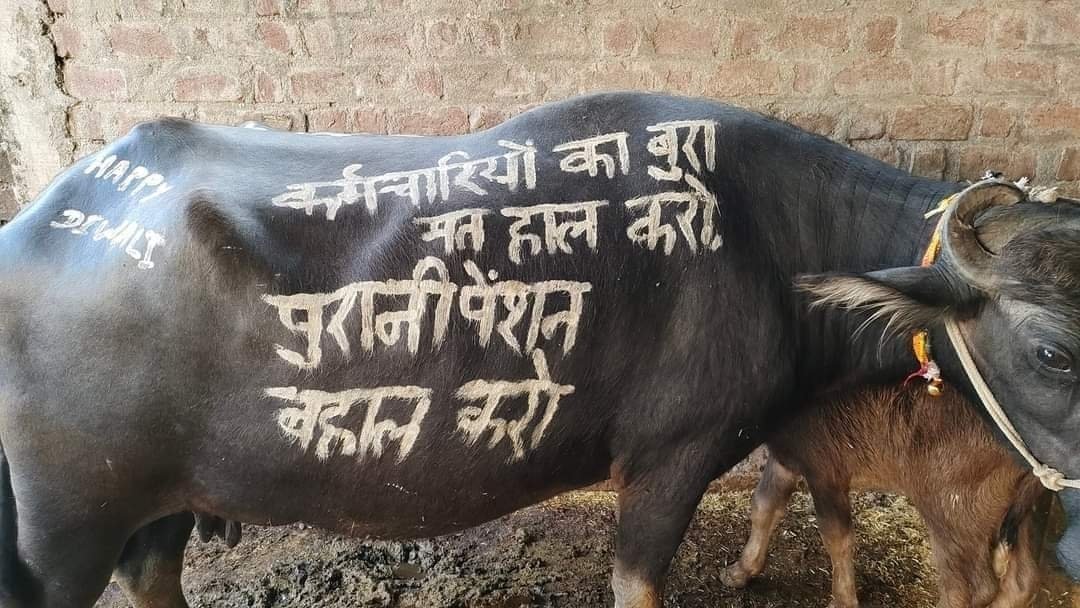 HAPPY
DIWALI
कर्मचारियों का बुरा
मत हाल करो,
पुरानी पेंशन
बहाल करो